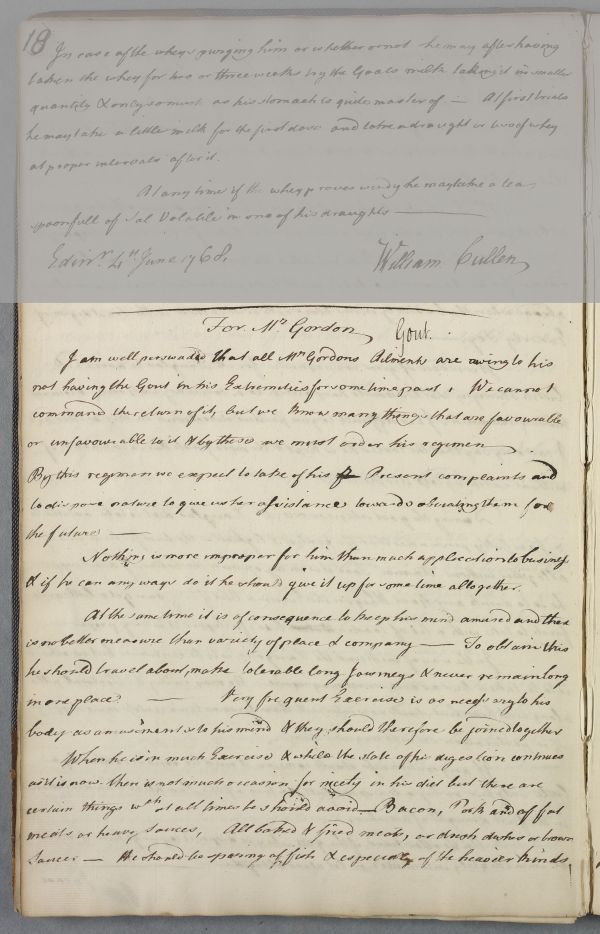 18
In case of the whey purging him or whether or not he may after having
taken the whey for two or three weeks try the Goats milk taking it in smaller
quantity & only so much as his stomach is quite master of — At first trials
he may take a little milk for the first dose and take a draught or two of whey
at proper intervals after it.
At any time if the whey proves windy he may take a tea
spoonfull of Sal Volatile in one of his draughts —
Edinr. 4th June 1768. William Cullen
For Mr Gordon Gout.
I am well perswaded that all Mr Gordons Ailments are owing to his
not having the Gout in his Extremities for some time past, We cannot
command the return of it, but we know many things that are favourable
or unfavourable to it & by these we must order his regimen
By this regimen we expect to take of his Present complaints and
to dispose nature to give us her assistance towards obviating them for
the future —
Nothing is more improper for him than much application to business
& if he can any ways do it he should give it up for some time altogether.
At the same time it is of consequence to keep his mind amused and there
is no better measure than variety of place & company — To obtain this
he should travel about, make tolerable long Journeys & never remain long
in one place. — Very frequent Exercise is as necessary to his
body as amusement is to his mind & they should therefore be joined together
When he is in much Exercise & while the state of his digestion continues
as it is now there is not much occasion for nicety in his diet but there are
certain things wch at all times he should avoid — Bacon, Pork and all fat
meats or heavy Sauces, All baked & fried meats, or drest dishes or brown
Sauces — He should be sparing of fish & especially of the heavier kinds